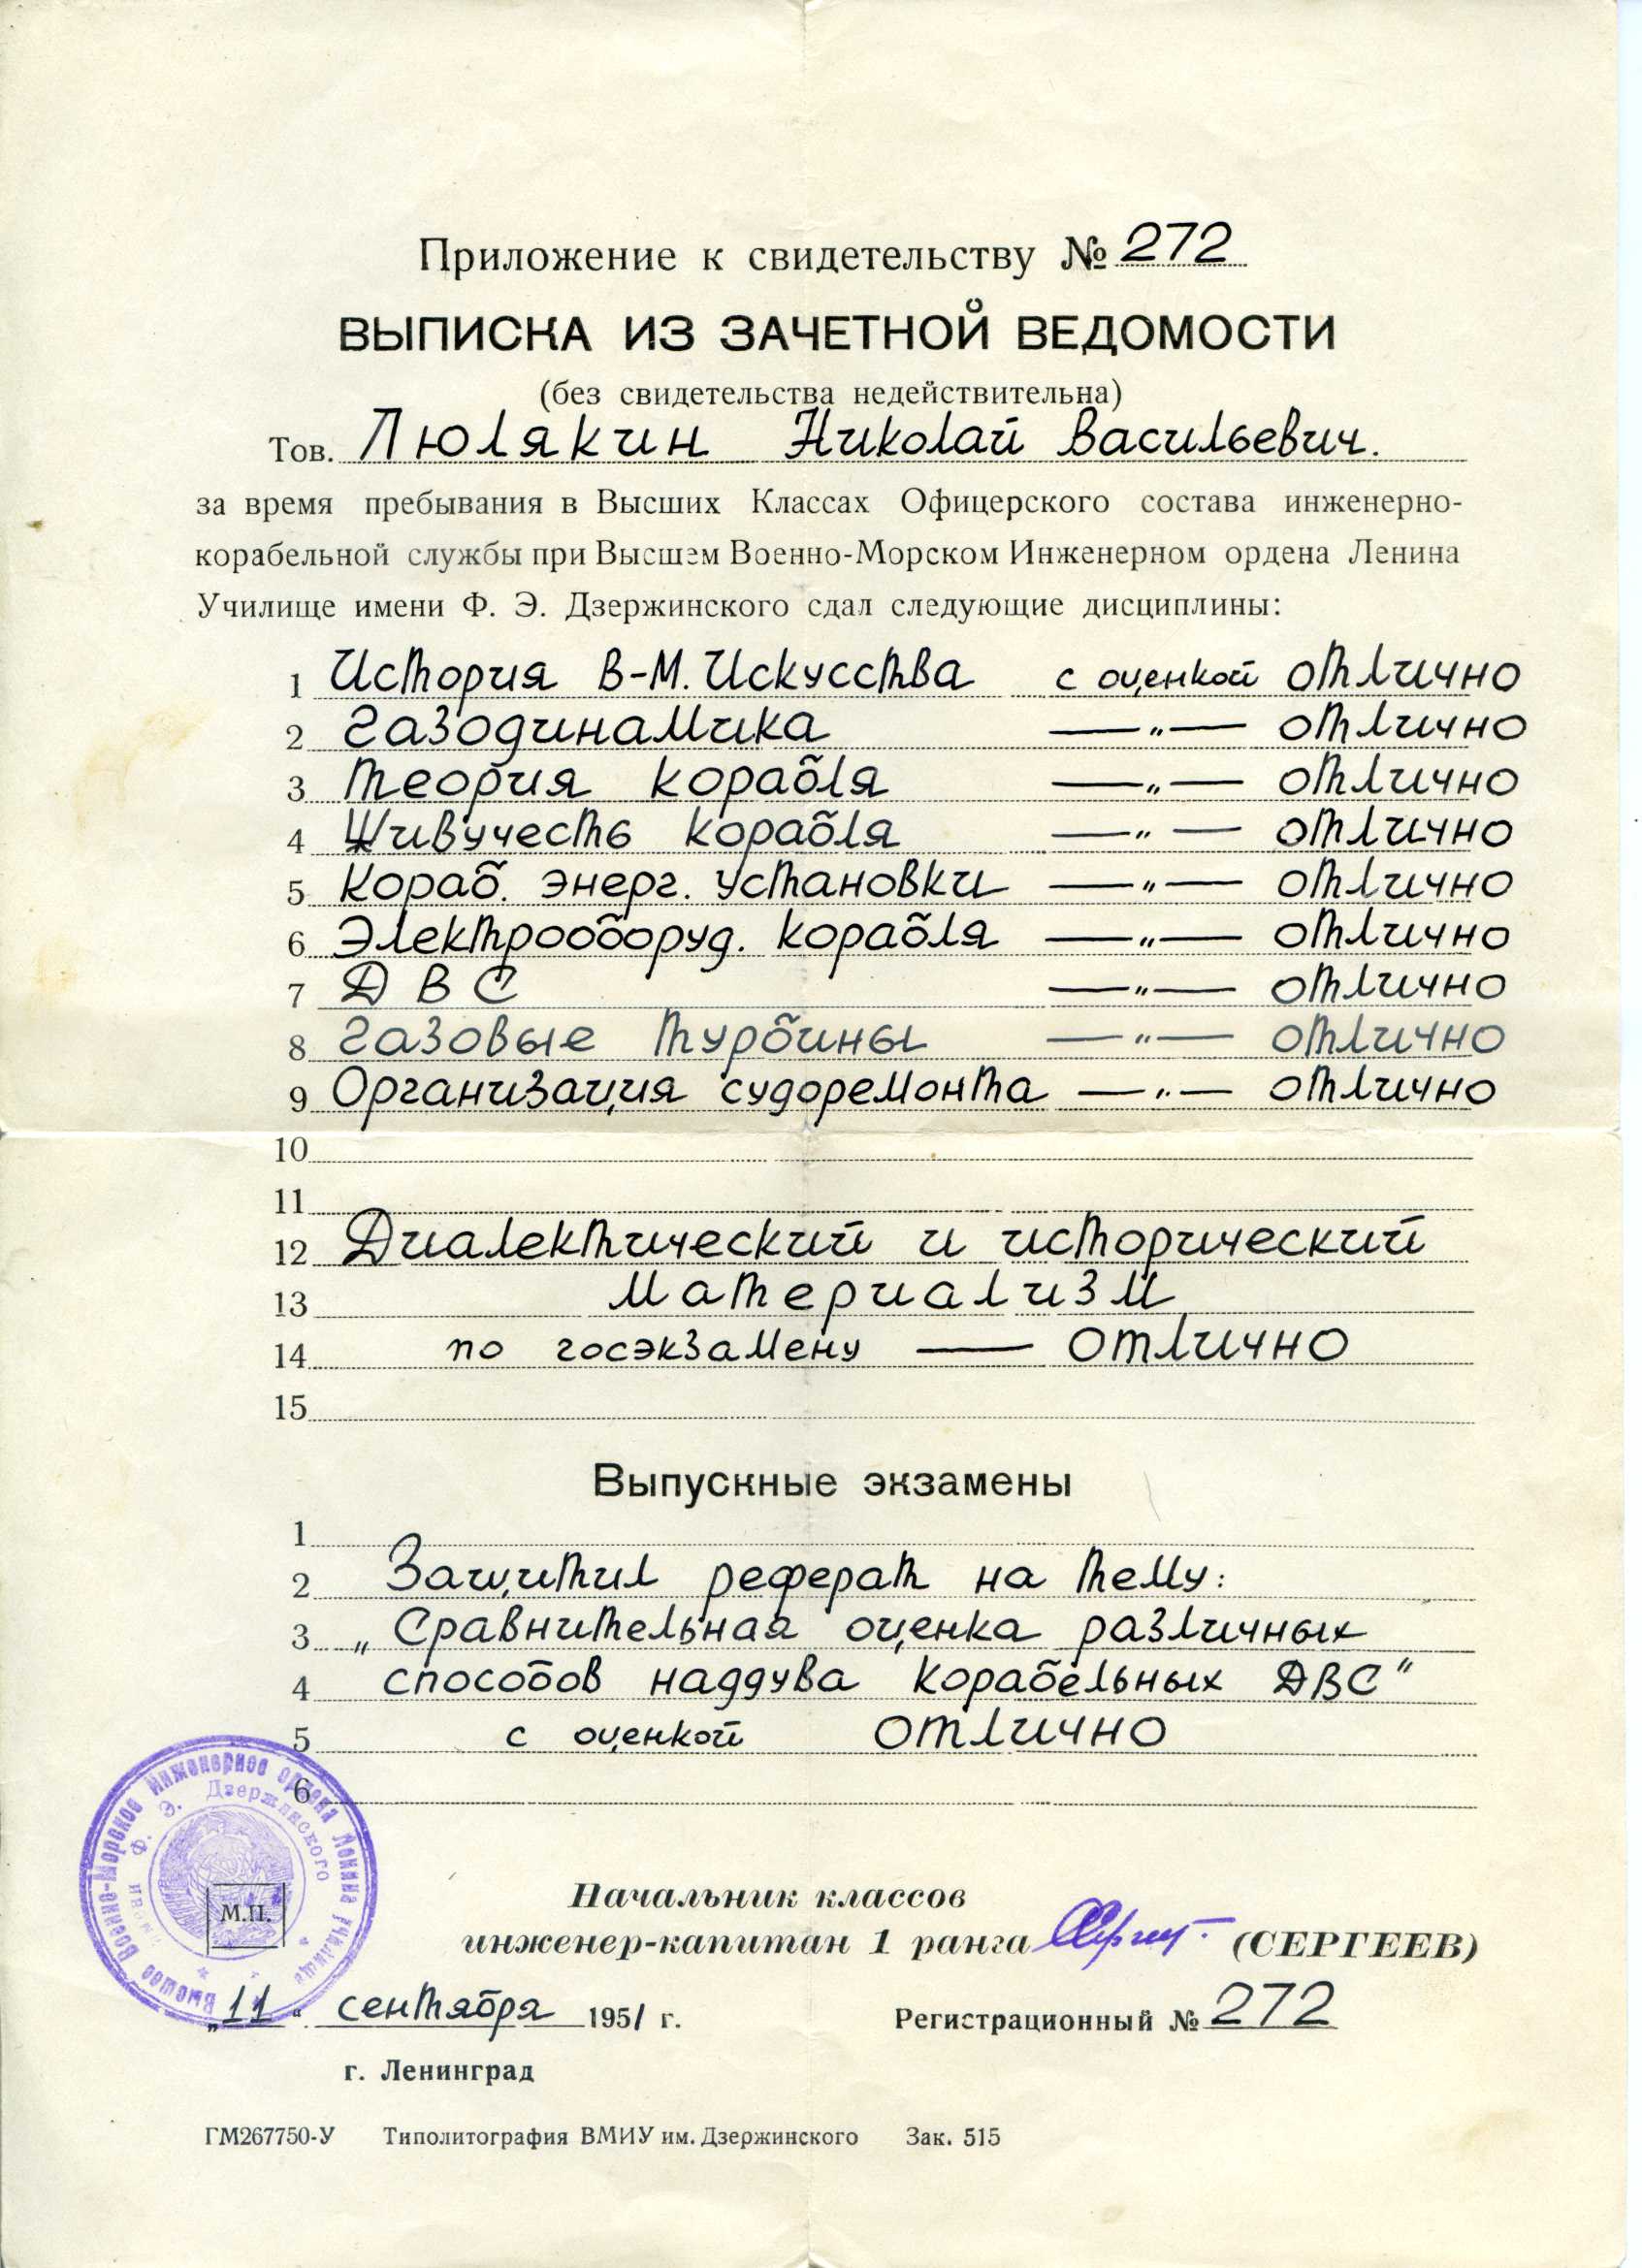 Приложение к свидетельству № 272
ВЫПИСКА ИЗ ЗАЧЕТНОЙ ВЕДОМОСТИ
(без свидетельства недействительна)
Тов. Люлякин Николай Васильевич.
за время пребывания в Высших Классах Офицерского состава инженерно-
корабельной службы при Высшем Военно-Морском Инженерном ордена Ленина
Училище имени Ф. Э. Дзержинского сдал следующие дисциплины:
1 История В-М. Искусства с оценкой отлично
2 Газодинамика —„— отлично
3 Теория корабля —„— отлично
4 Живучесть корабля —„— отлично
5 Кораб. энерг. установки —„— отлично
6 Электрооборуд. корабля —„— отлично
7 ДВС —„— отлично
8 Газовые турбины —„— отлично
9 Организация судоремонта —„— отлично
10
11
12 Диалектический и исторический
13 материализм
14 по госэкзамену — отлично
15
Выпускные экзамены
1
2 Защитил реферат на тему:
3 „Сравнительная оценка различных
4 способов наддува корабельных ДВС"
5 с оценкой отлично
6
Высшее Военно-Морское Инженерное ордена Ленина училище
имени Ф. Э. Дзержинского
М.П.
Начальник классов
инженер-капитан 1 ранга (СЕРГЕЕВ)
„11" сентября 1951 г. Регистрационный № 272
г. Ленинград
ГМ267750-У Типолитография ВМИУ им. Дзержинского Зак. 515